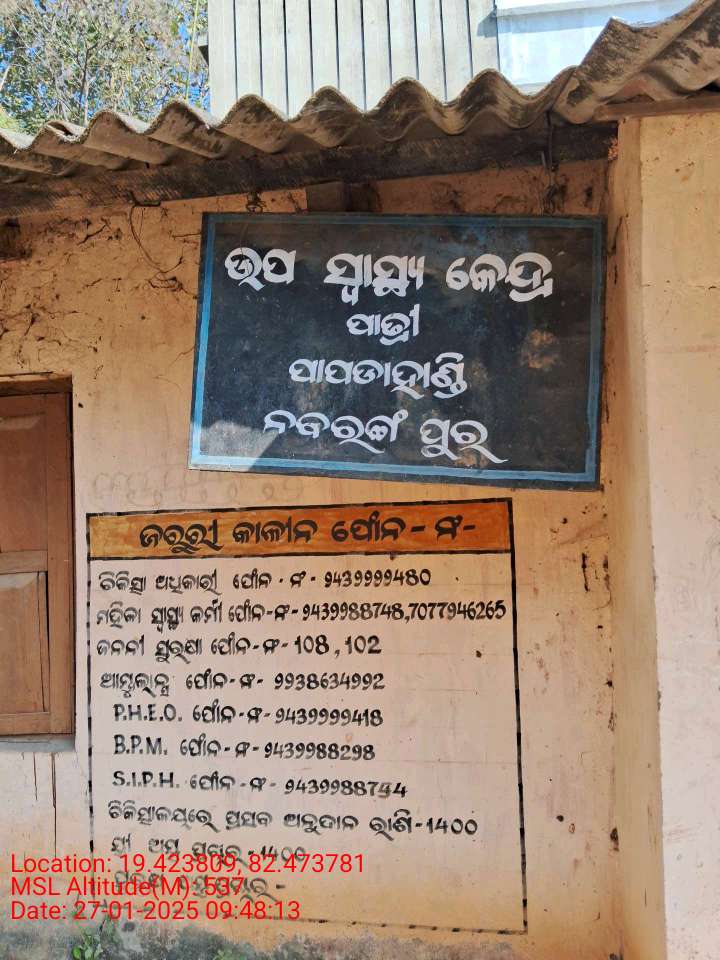 ଉପ ସ୍ୱାସ୍ଥ୍ୟ କେନ୍ଦ୍ର
ପାତ୍ରୀ
ପାପଡାହାଣ୍ଡି
ନବରଙ୍ଗ ପୁର
ଜରୁରୀ କାଳୀନ ଫୋନ - ନଂ -
ଚିକିତ୍ସା ଅଧିକାରୀ ଫୋନ - ନଂ - 9439999480
ମହିଳା ସ୍ୱାସ୍ଥ୍ୟ କର୍ମୀ ଫୋନ-ନଂ-9439988748,7077946265
ଜନନୀ ସୁରକ୍ଷା ଫୋନ-ନଂ-108,102
ଆମ୍ବୁଲାନ୍ସ ଫୋନ-ନଂ- 9938634992
P.H.E.O. ଫୋନ-ନଂ-9439999418
B.P.M. ଫୋନ-ନଂ-9439988298
S.I.P.H. ଫୋନ-ନଂ-9439988744
ଚିକିତ୍ସାଳୟରେ ପ୍ରସବ ଅନୁଦାନ ରାଶି-1400
-1400
Location: 19.423809, 82.473781
MSL Altitude(M): 537
Date: 27-01-2025 09:48:13